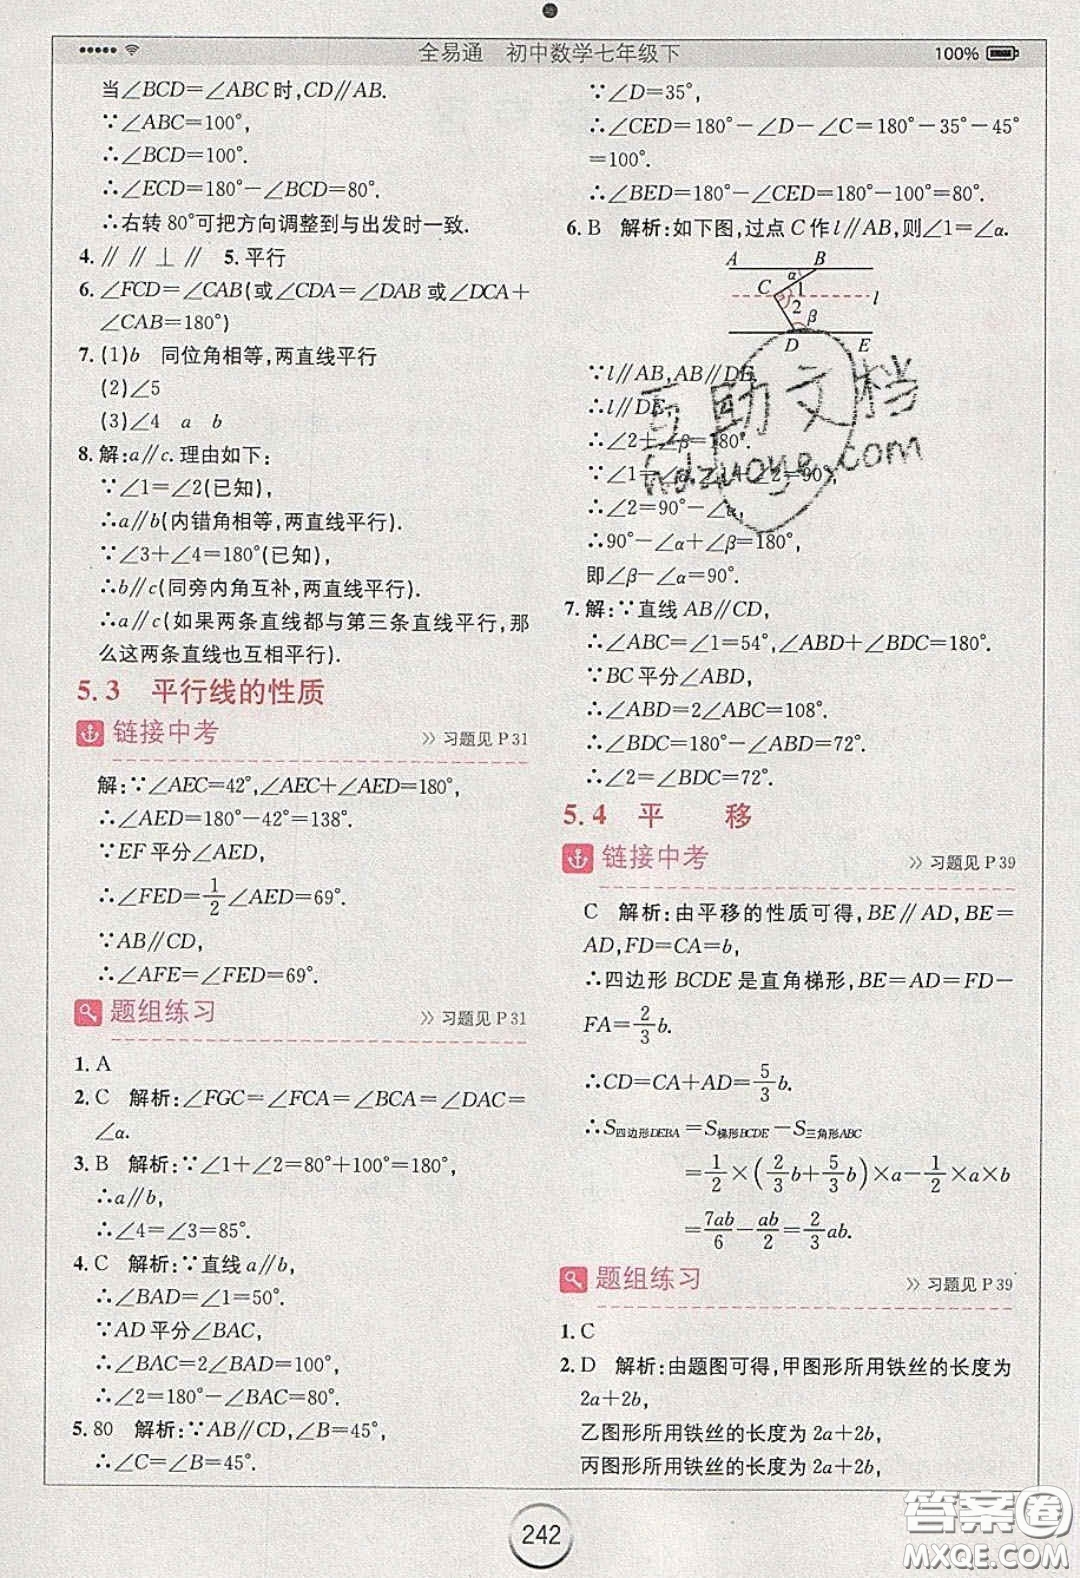 全易通 初中数学七年级下
100%
当∠BCD=∠ABC时,CD∥AB.
∵∠ABC=100°,
∴∠BCD=100°.
∴∠ECD=180°-∠BCD=80°.
∴右转80°可把方向调整到与出发时一致.
4. ∥ ∥ ⊥ ∥ 5. 平行
6. ∠FCD=∠CAB(或∠CDA=∠DAB或∠DCA+
∠CAB=180°)
7. (1)b 同位角相等,两直线平行
(2)∠5
(3)∠4 a b
8. 解:a∥c.理由如下:
∵∠1=∠2(已知),
∴a∥b(内错角相等,两直线平行).
∵∠3+∠4=180°(已知),
∴b∥c(同旁内角互补,两直线平行).
∴a∥c(如果两条直线都与第三条直线平行,那
么这两条直线也互相平行).
5.3 平行线的性质
链接中考 >> 习题见P31
解:∵∠AEC=42°,∠AEC+∠AED=180°,
∴∠AED=180°-42°=138°.
∵EF平分∠AED,
∴∠FED=1/2∠AED=69°.
∵AB∥CD,
∴∠AFE=∠FED=69°.
题组练习 >> 习题见P31
1. A
2. C 解析:∠FGC=∠FCA=∠BCA=∠DAC=
∠α.
3. B 解析:∵∠1+∠2=80°+100°=180°,
∴a∥b,
∴∠4=∠3=85°.
4. C 解析:∵直线a∥b,
∴∠BAD=∠1=50°.
∵AD平分∠BAC,
∴∠BAC=2∠BAD=100°,
∴∠2=180°-∠BAC=80°.
5. 80 解析:∵AB∥CD,∠B=45°,
∴∠C=∠B=45°.
∵∠D=35°,
∴∠CED=180°-∠D-∠C=180°-35°-45°
=100°.
∴∠BED=180°-∠CED=180°-100°=80°.
6. B 解析:如下图,过点C作l∥AB,则∠1=∠α.
A B
α
C 1 l
2
β
D E
∵l∥AB,AB∥DE,
∴l∥DE,
∴∠2+∠β=180°.
∵∠1+∠2=90°,
∴∠2=90°-∠α,
∴90°-∠α+∠β=180°,
即∠β-∠α=90°.
7. 解:∵直线AB∥CD,
∴∠ABC=∠1=54°,∠ABD+∠BDC=180°.
∵BC平分∠ABD,
∴∠ABD=2∠ABC=108°.
∴∠BDC=180°-∠ABD=72°.
∴∠2=∠BDC=72°.
5.4 平 移
链接中考 >> 习题见P39
C 解析:由平移的性质可得,BE∥AD,BE=
AD,FD=CA=b,
∴四边形BCDE是直角梯形,BE=AD=FD-
FA=2/3b.
∴CD=CA+AD=5/3b.
∴S四边形DEBA=S梯形BCDE-S三角形ABC
=1/2×(2/3b+5/3b)×a-1/2×a×b
=7ab/6-ab/2=2/3ab.
题组练习 >> 习题见P39
1. C
2. D 解析:由题图可得,甲图形所用铁丝的长度为
2a+2b,
乙图形所用铁丝的长度为2a+2b,
丙图形所用铁丝的长度为2a+2b,
242
互助文档
hdzuoye.com
答案圈
MXQE.COM